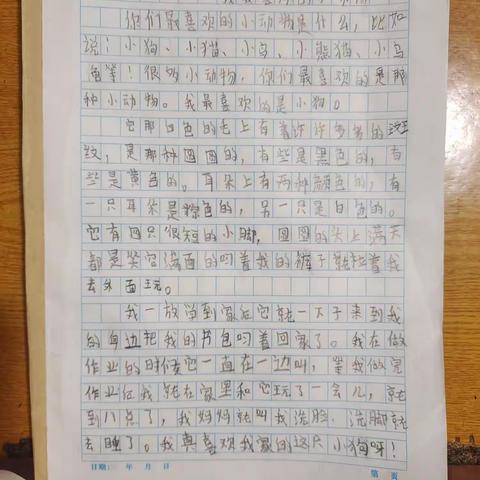 你们最喜欢的小动物是什么,比如
说:小狗、小猫、小鸟、小熊猫、小乌
龟等!很多小动物,你们最喜欢的是那
种小动物。我最喜欢的是小狗。
它那白色的毛上有着许许多多的斑
纹,是那种圆圆的,有些是黑色的,有
些是黄色的。耳朵上有两种颜色的,有
一只耳朵是棕色的,另一只是白色的。
它有四只很短的小脚,圆圆的头上满天
都是笑容满面的叼着我的裤子就拉着我
去外面玩。
我一放学到家后它就一下子来到我
的身边把我的书包叼着回家了。我在做
作业的时候它一直在一边叫,等我做完
作业后我就在家里和它玩了一会儿,就
到八点了,我妈妈就叫我洗脸、洗脚就
去睡了。我真喜欢我家的这只小狗呀!
日期: 年 月 日 第 页